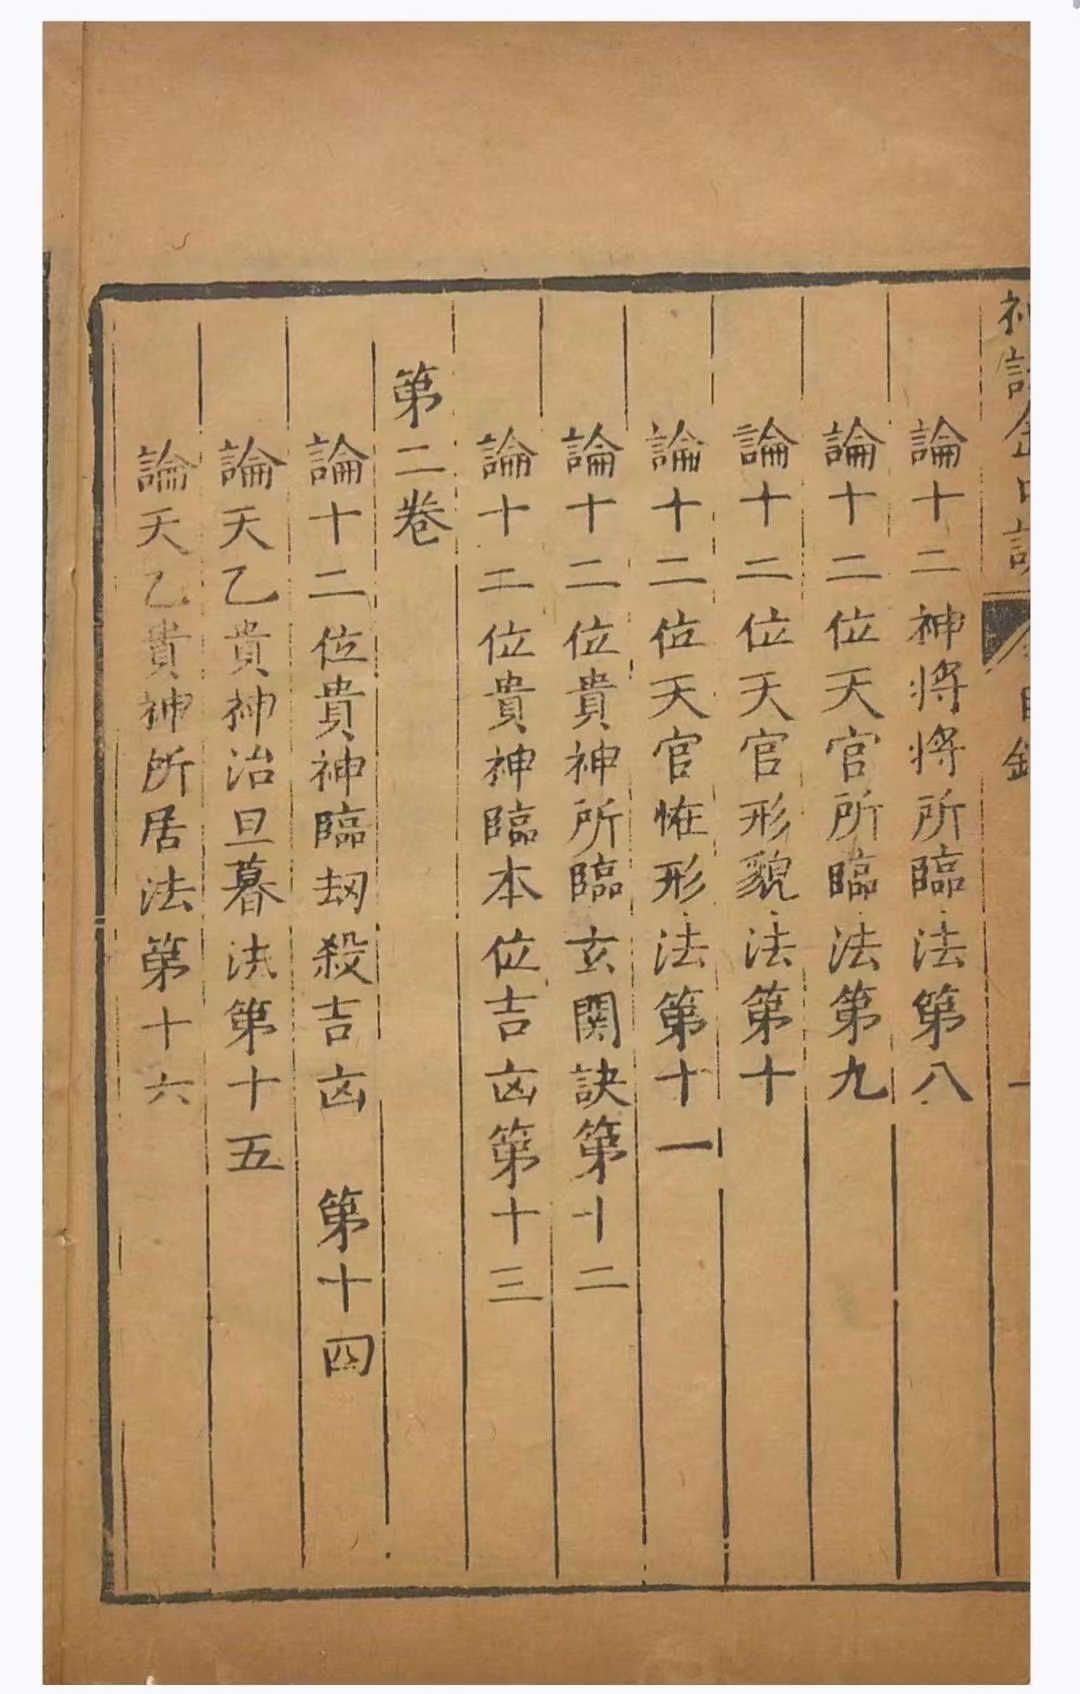 論十二神將將所臨法第八
論十二位天官所臨法第九
論十二位天官形貌法第十
論十二位天官恠形法第十一
論十二位貴神所臨玄関訣第十二
論十二位貴神臨本位吉凶第十三
第二卷
論十二位貴神臨刼殺吉凶 第十四
論天乙貴神治旦暮法第十五
論天乙貴神所居法第十六